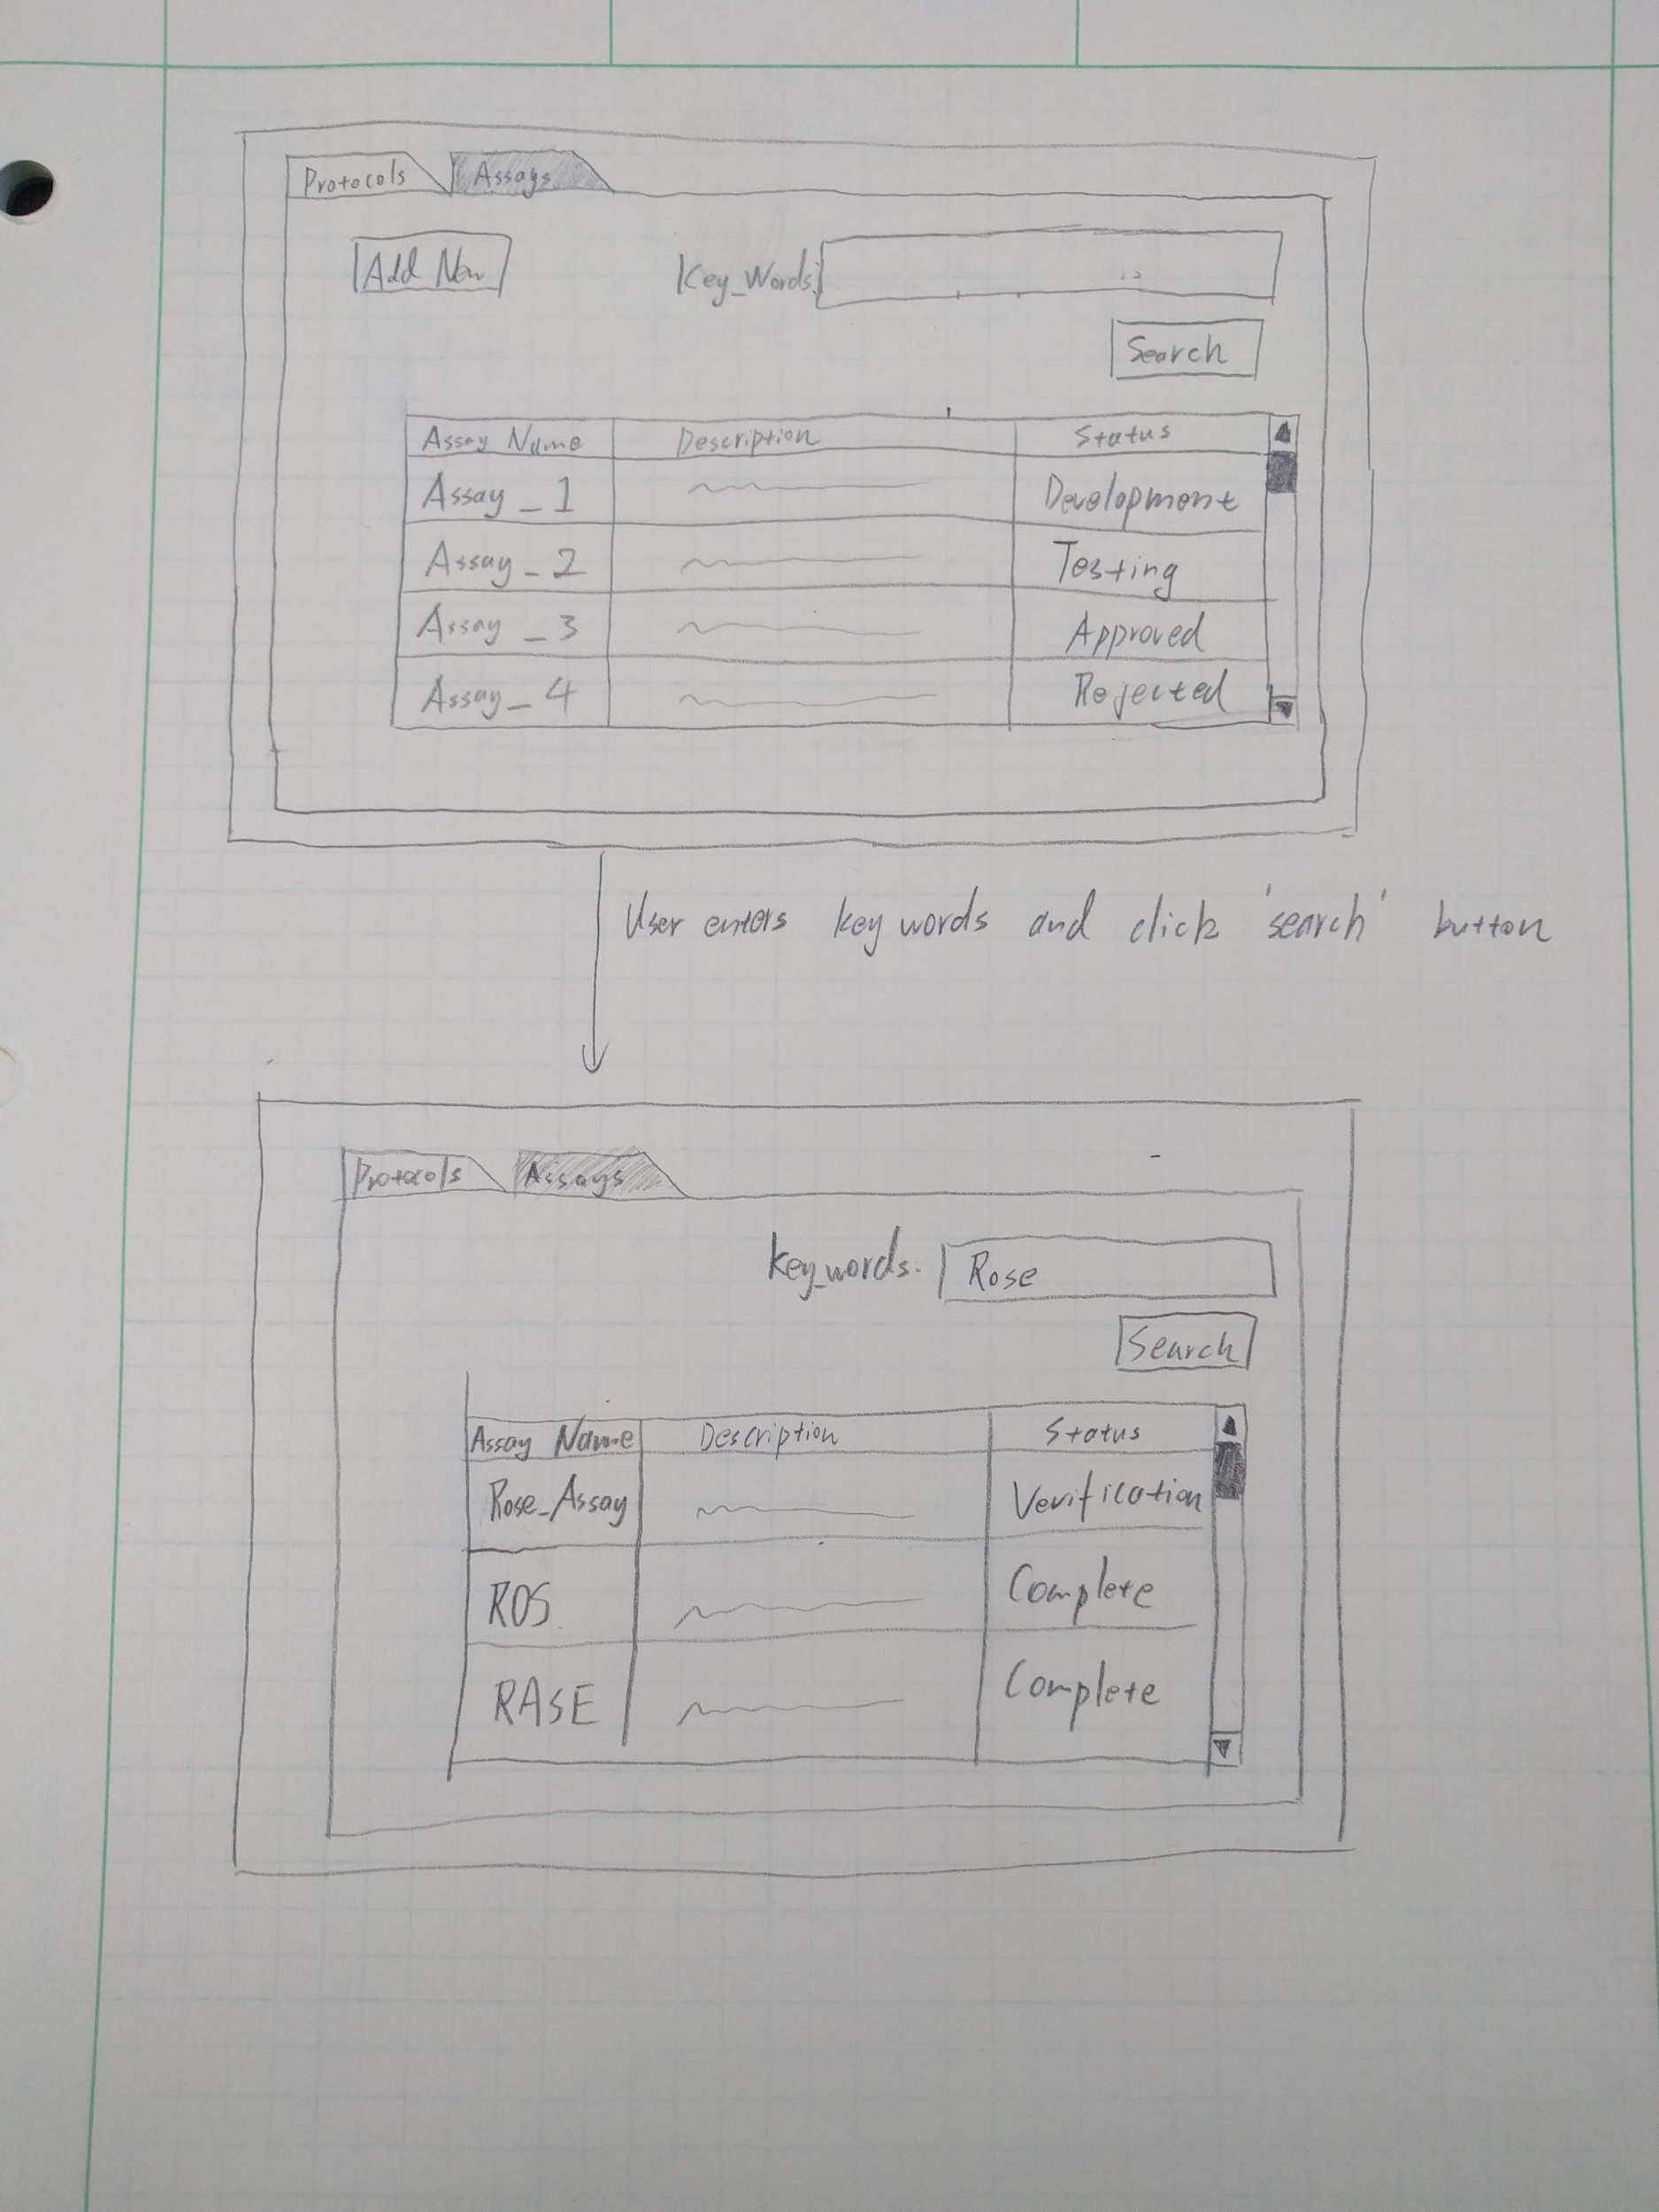 Protocols Assays
Add New Key_Words:
Search
Assay Name Description Status
Assay_1 Development
Assay_2 Testing
Assay_3 Approved
Assay_4 Rejected
User enters key words and click 'search' button
Protocols Assays
Key_words: Rose
Search
Assay Name Description Status
Rose_Assay Verification
ROS Complete
RASE Complete